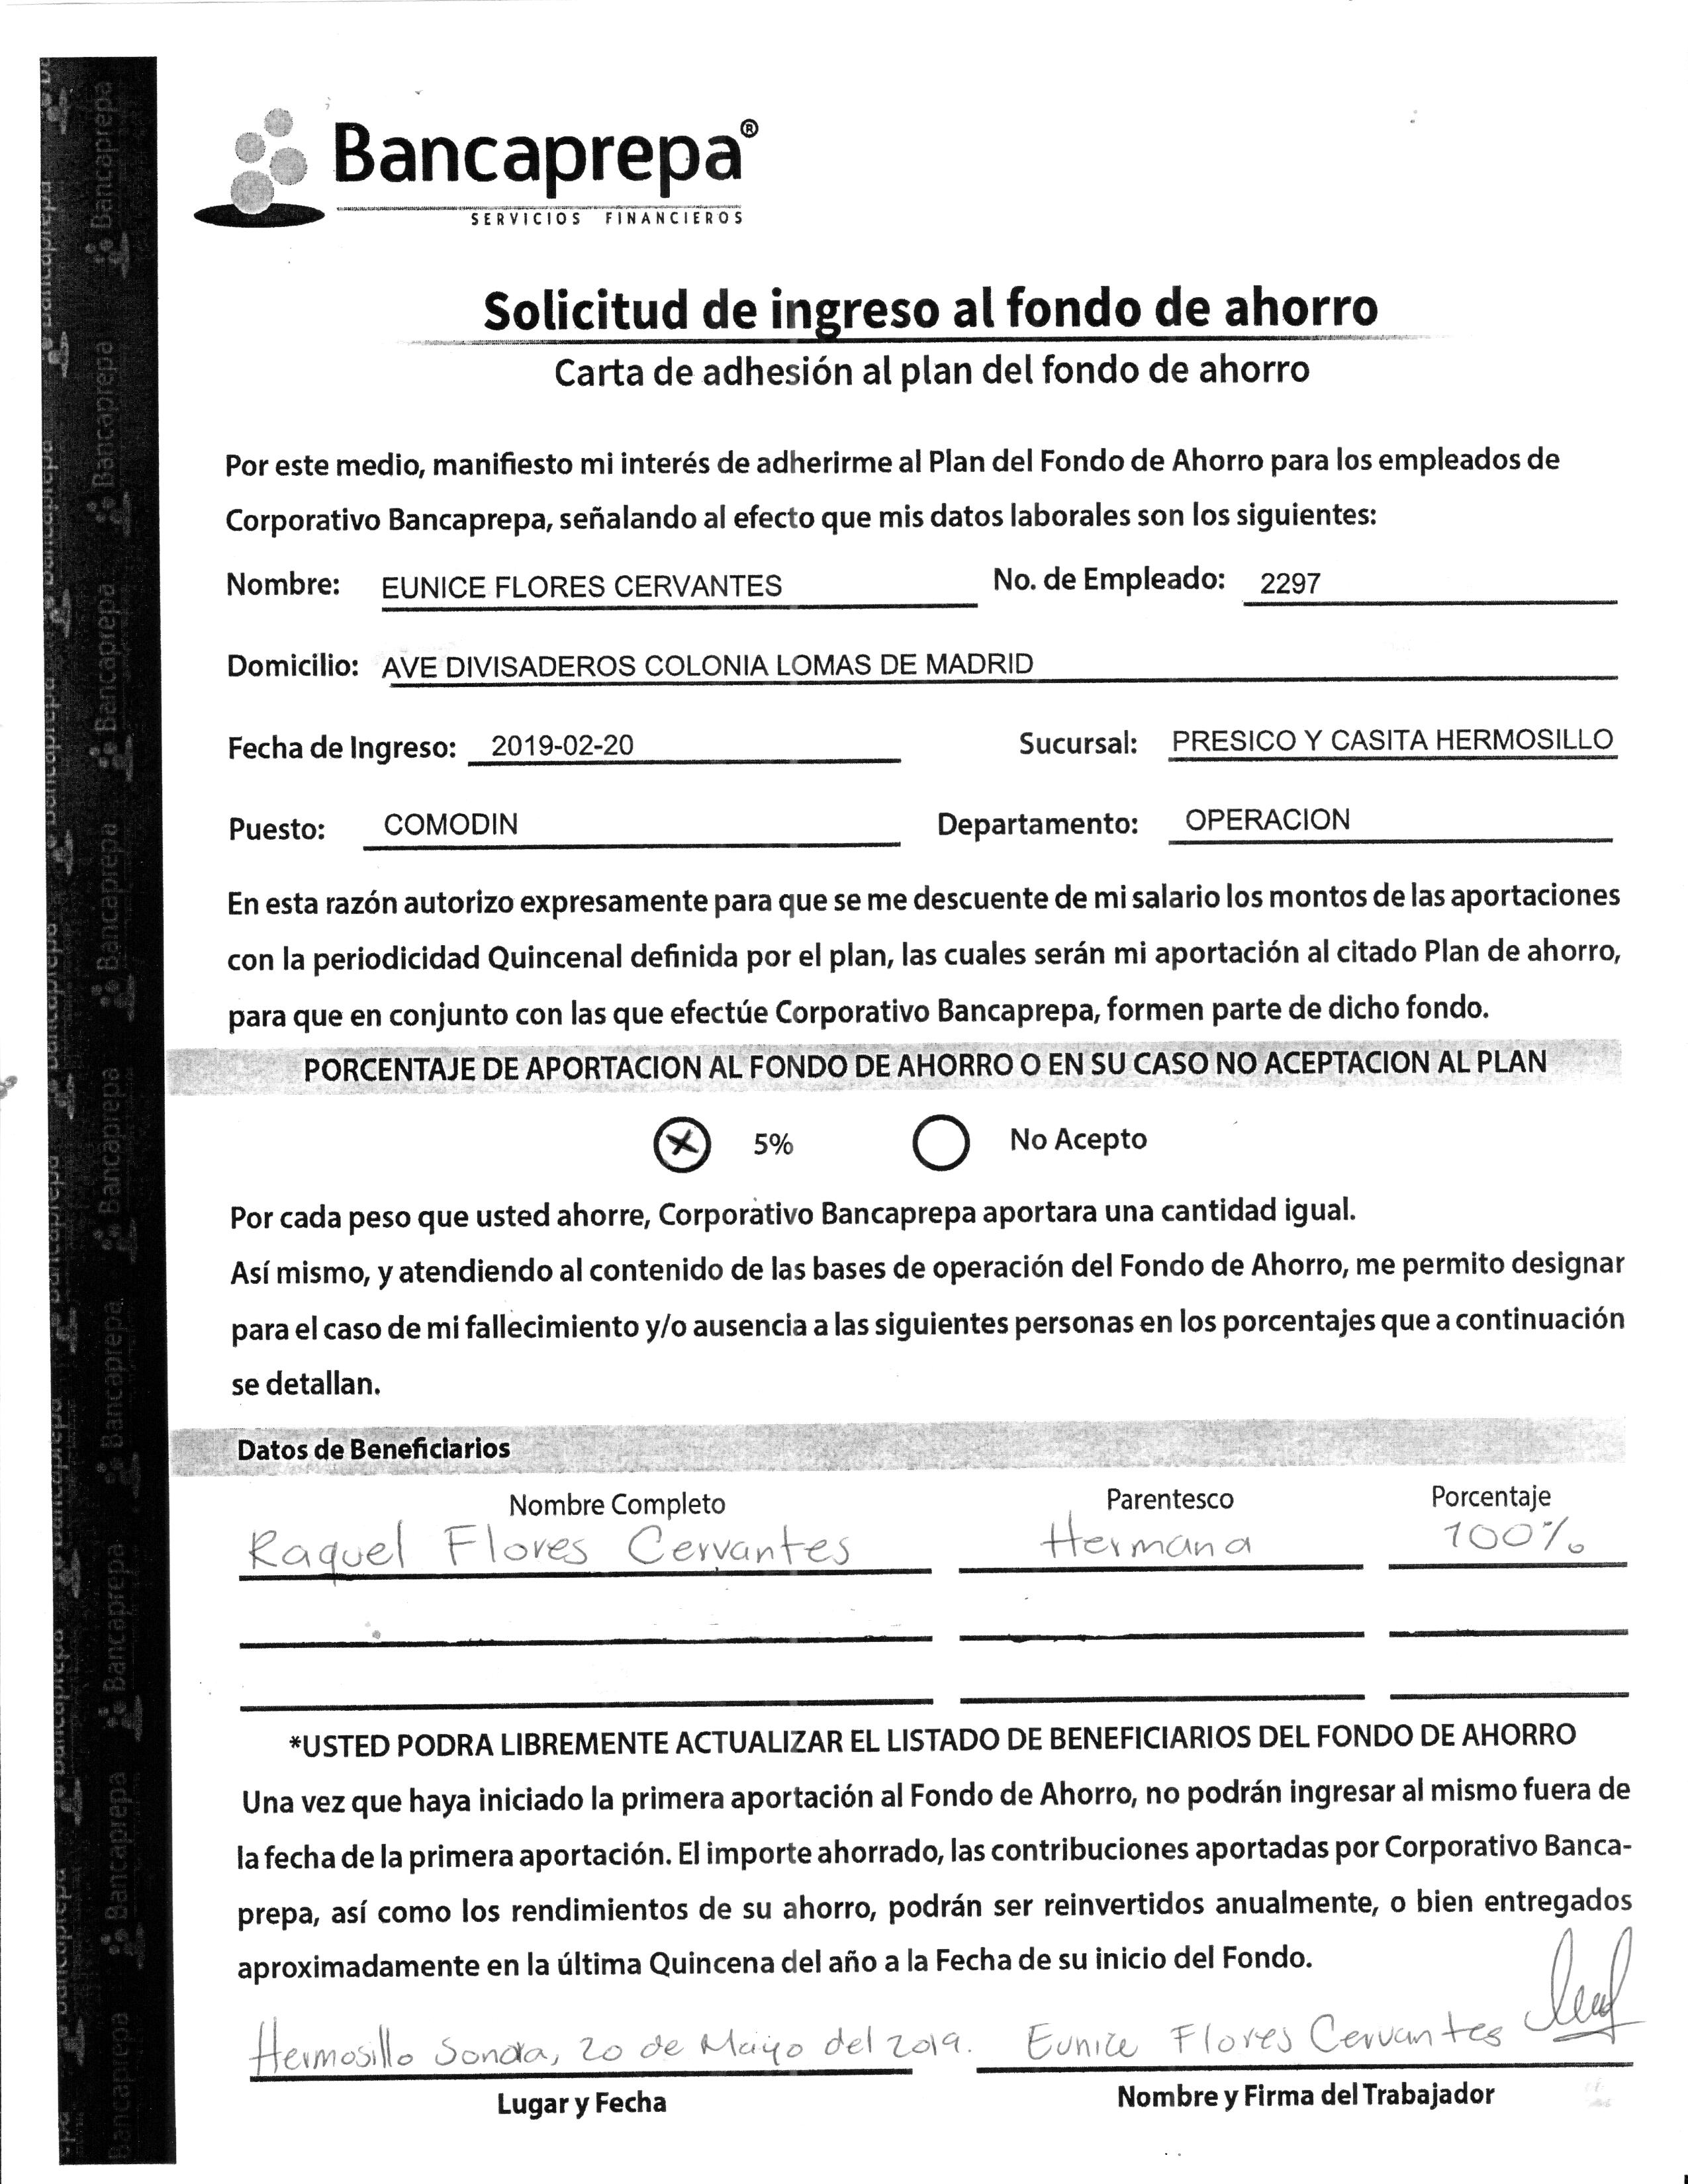 Bancaprepa®
SERVICIOS FINANCIEROS
Solicitud de ingreso al fondo de ahorro
Carta de adhesión al plan del fondo de ahorro
Por este medio, manifiesto mi interés de adherirme al Plan del Fondo de Ahorro para los empleados de
Corporativo Bancaprepa, señalando al efecto que mis datos laborales son los siguientes:
Nombre: EUNICE FLORES CERVANTES No. de Empleado: 2297
Domicilio: AVE DIVISADEROS COLONIA LOMAS DE MADRID
Fecha de Ingreso: 2019-02-20 Sucursal: PRESICO Y CASITA HERMOSILLO
Puesto: COMODIN Departamento: OPERACION
En esta razón autorizo expresamente para que se me descuente de mi salario los montos de las aportaciones
con la periodicidad Quincenal definida por el plan, las cuales serán mi aportación al citado Plan de ahorro,
para que en conjunto con las que efectúe Corporativo Bancaprepa, formen parte de dicho fondo.
PORCENTAJE DE APORTACION AL FONDO DE AHORRO O EN SU CASO NO ACEPTACION AL PLAN
X 5% No Acepto
Por cada peso que usted ahorre, Corporativo Bancaprepa aportara una cantidad igual.
Así mismo, y atendiendo al contenido de las bases de operación del Fondo de Ahorro, me permito designar
para el caso de mi fallecimiento y/o ausencia a las siguientes personas en los porcentajes que a continuación
se detallan.
Datos de Beneficiarios
Nombre Completo Parentesco Porcentaje
Raquel Flores Cervantes Hermana 100%
*USTED PODRA LIBREMENTE ACTUALIZAR EL LISTADO DE BENEFICIARIOS DEL FONDO DE AHORRO
Una vez que haya iniciado la primera aportación al Fondo de Ahorro, no podrán ingresar al mismo fuera de
la fecha de la primera aportación. El importe ahorrado, las contribuciones aportadas por Corporativo Banca-
prepa, así como los rendimientos de su ahorro, podrán ser reinvertidos anualmente, o bien entregados
aproximadamente en la última Quincena del año a la Fecha de su inicio del Fondo.
Hermosillo Sonora, 20 de Mayo del 2019. Eunice Flores Cervantes
Lugar y Fecha Nombre y Firma del Trabajador